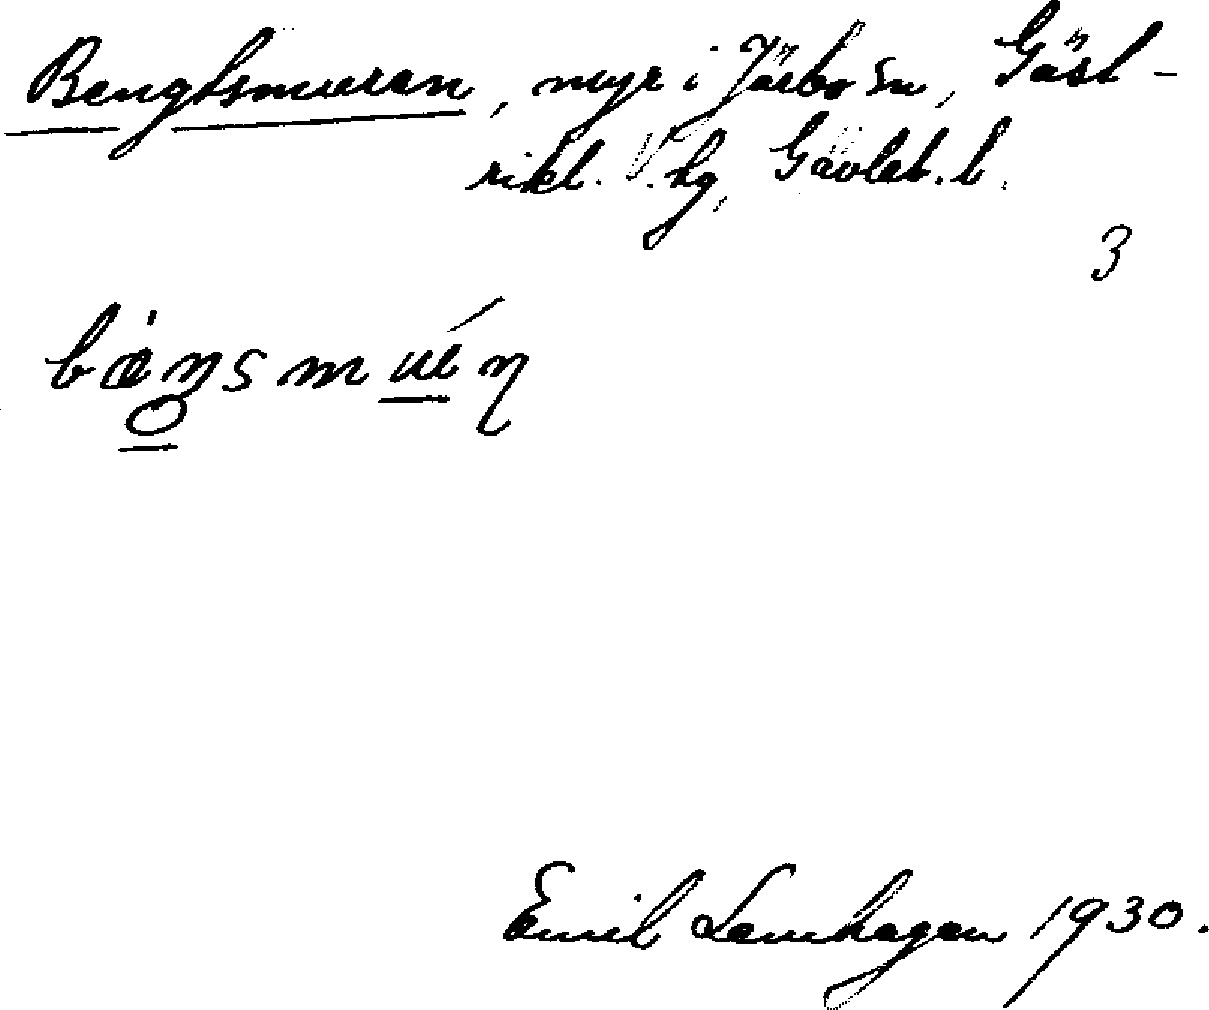 Bengtsmuran, myr i Järbo sn, Gäst-
rikl. V. hg, Gävleb. l.
3
Emil Lamhagen 1930.